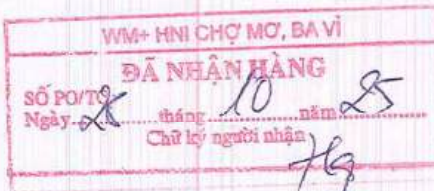 WM+ HNI CHỢ MƠ, BA VÌ
ĐÃ NHẬN HÀNG
SỐ PO/TO
Ngày 28 tháng 10 năm 25
Chữ ký người nhận